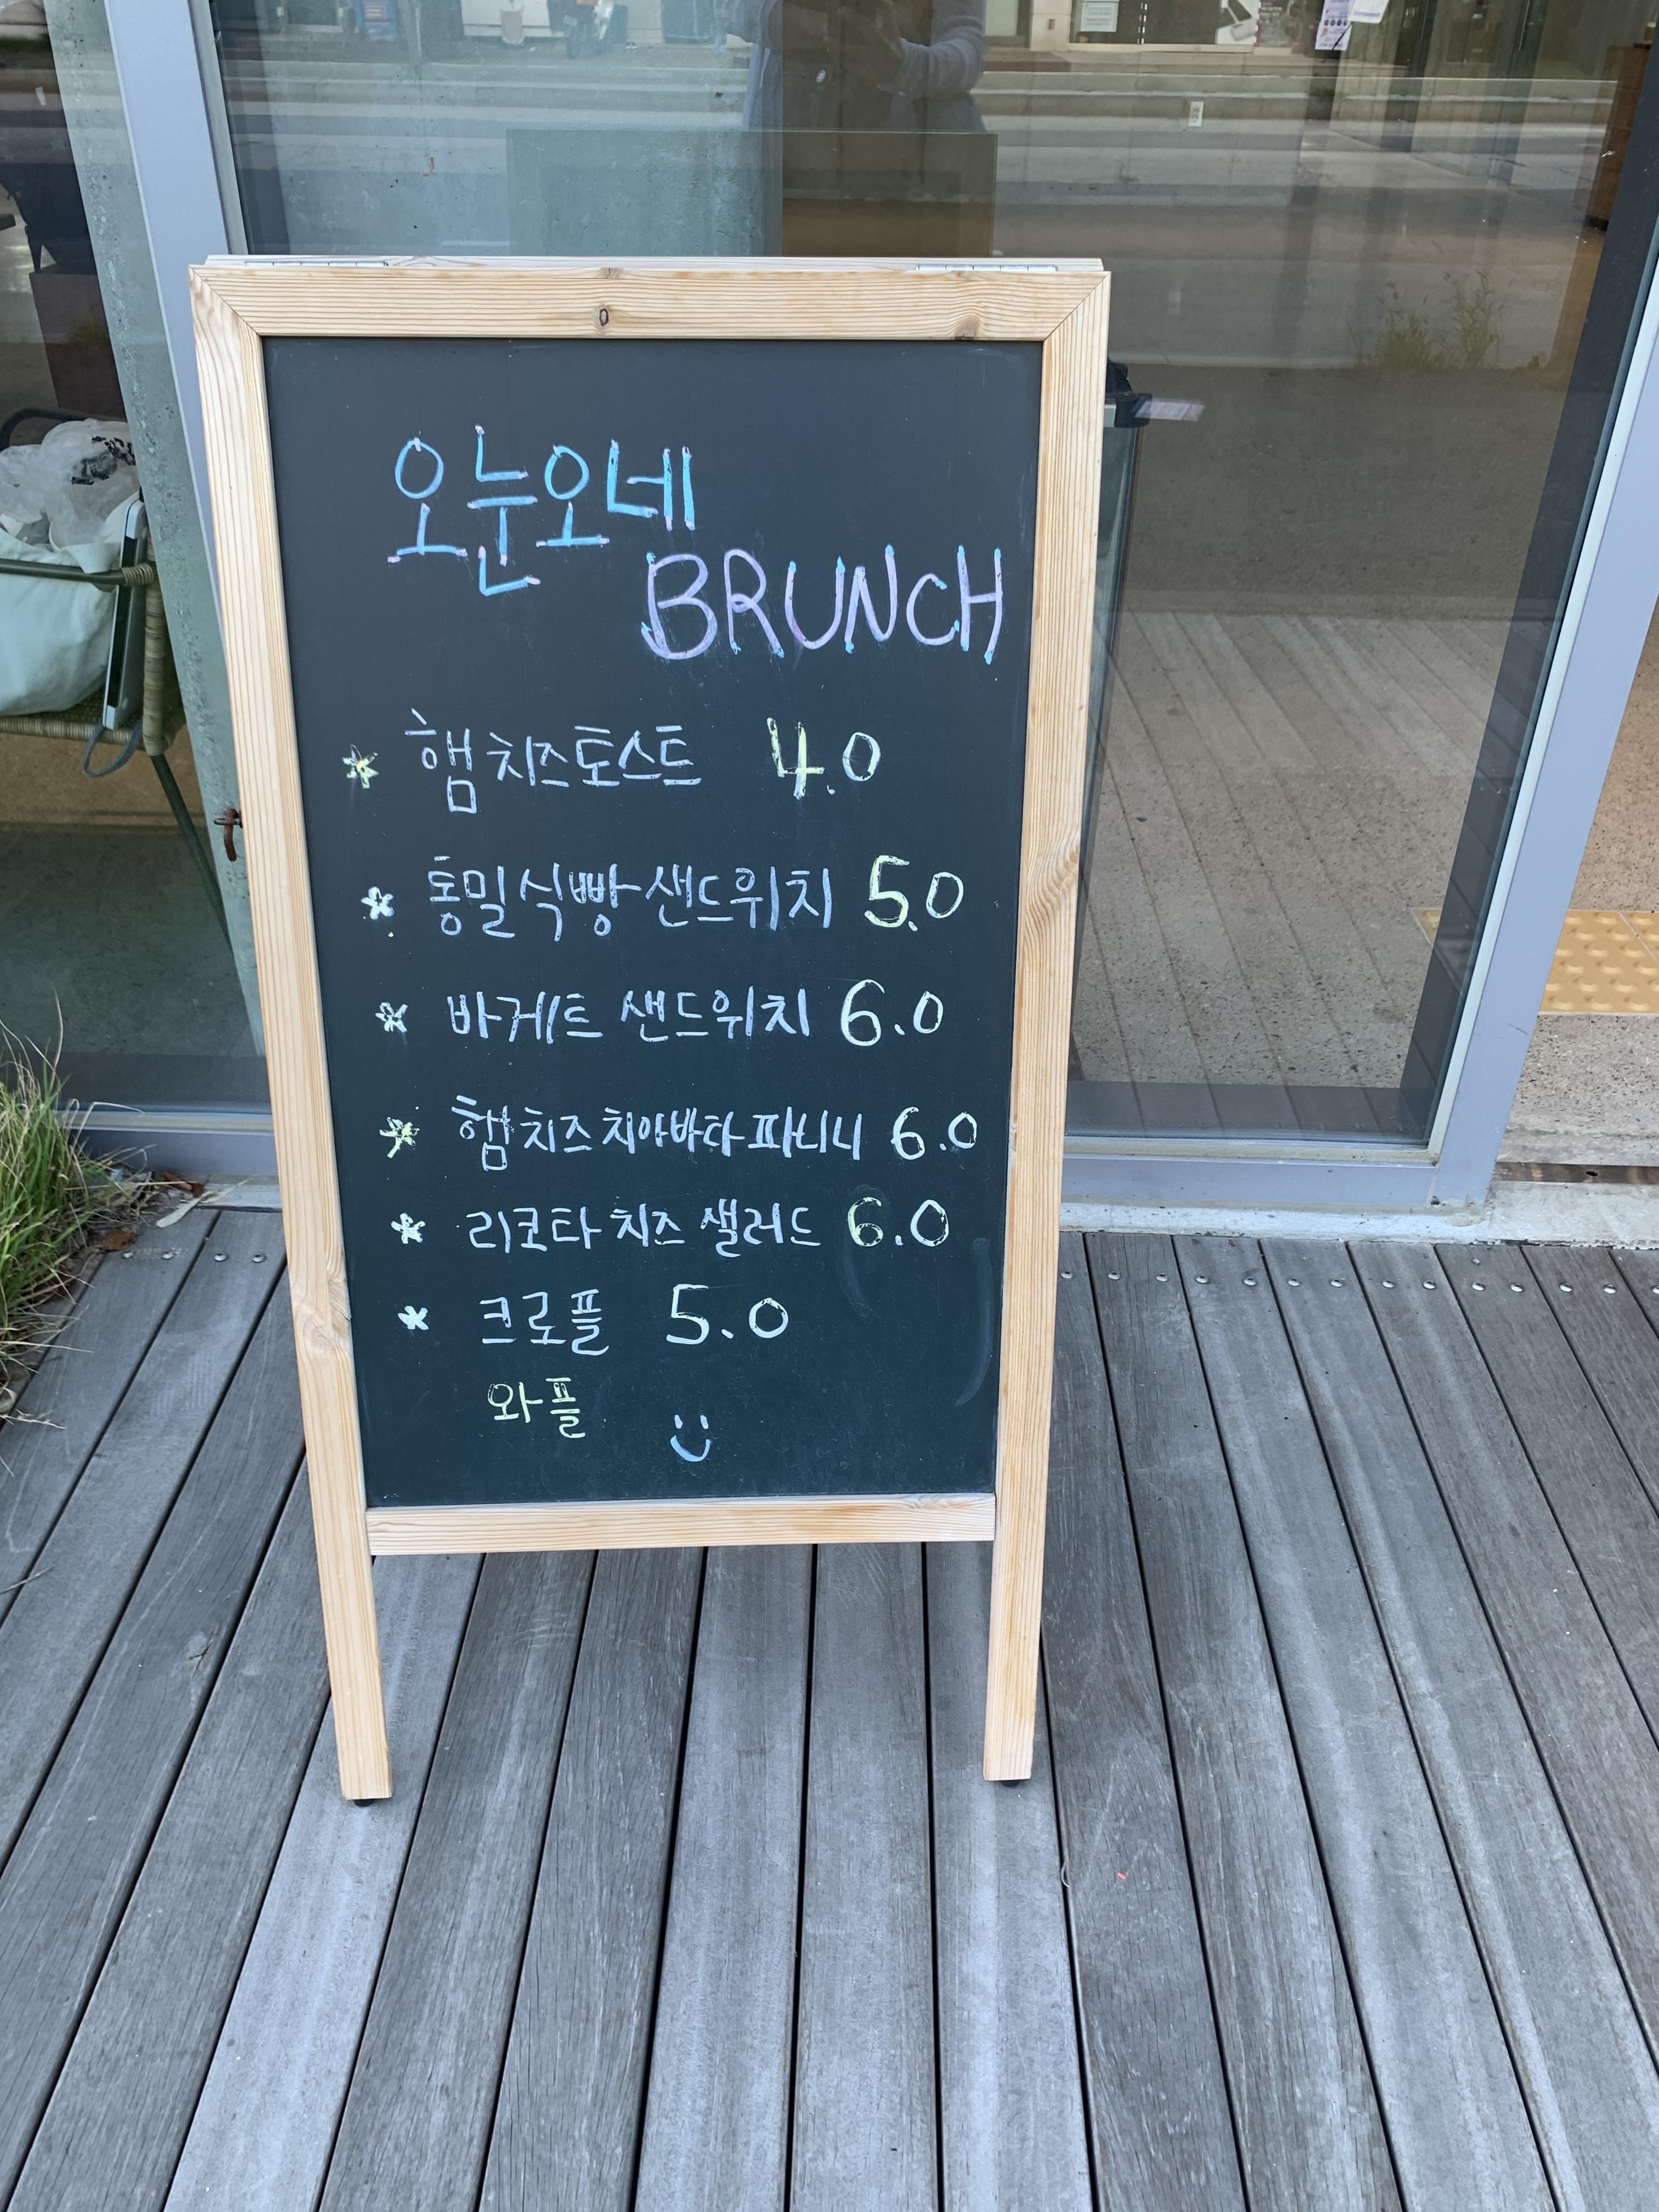 오눈오네
BRUNCH
* 햄치즈토스트 4.0
* 통밀식빵샌드위치 5.0
* 바게트 샌드위치 6.0
* 햄치즈치아바타파니니 6.0
* 리코타치즈 샐러드 6.0
* 크로플 5.0
와플